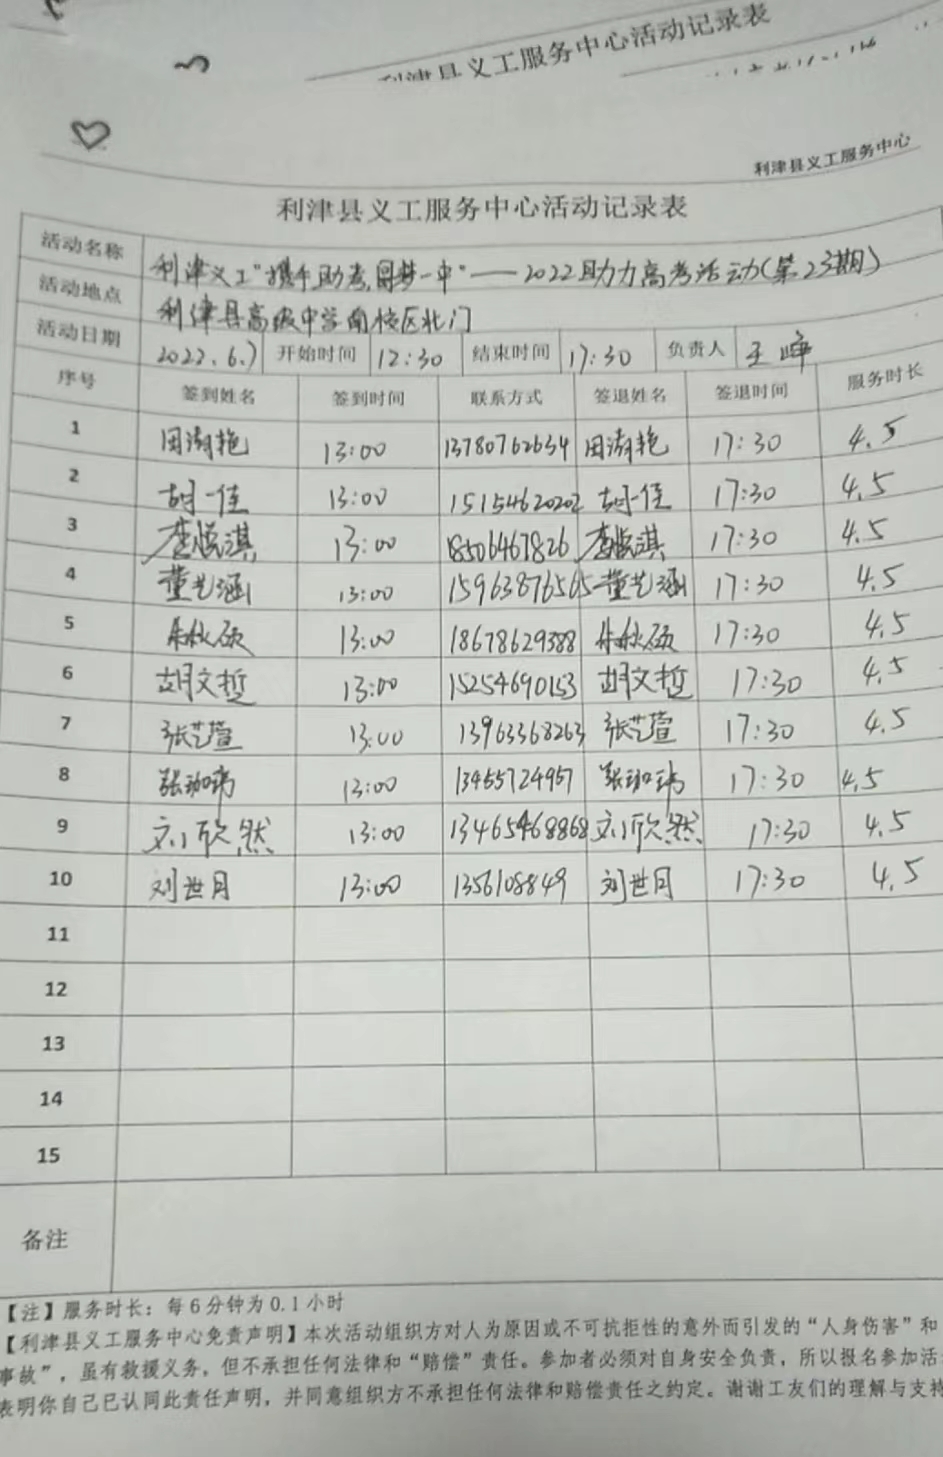 利津县义工服务中心活动记录表
利津县义工服务中心
利津县义工服务中心活动记录表
活动名称 利津义工"携手助考,圆梦一中"——2022助力高考活动(第23期)
活动地点 利津县高级中学南校区北门
活动日期 2022.6.7 开始时间 12:30 结束时间 17:30 负责人 王峰
序号 签到姓名 签到时间 联系方式 签退姓名 签退时间 服务时长
1 田湖艳 13:00 13780762634 田湖艳 17:30 4.5
2 胡一佳 13:00 15154620202 胡一佳 17:30 4.5
3 13:00 18506467826 17:30 4.5
4 董艺涵 13:00 15963876565 董艺涵 17:30 4.5
5 朱秋硕 13:00 18678629388 朱秋硕 17:30 4.5
6 胡文哲 13:00 15254690153 胡文哲 17:30 4.5
7 张艺萱 13:00 13963368263 张艺萱 17:30 4.5
8 张珈玮 13:00 13455724957 张珈玮 17:30 4.5
9 刘欣然 13:00 13465468868 刘欣然 17:30 4.5
10 刘世月 13:00 1356108849 刘世月 17:30 4.5
11
12
13
14
15
备注
【注】服务时长：每6分钟为0.1小时
【利津县义工服务中心免责声明】本次活动组织方对人为原因或不可抗拒性的意外而引发的“人身伤害”和
事故”，虽有救援义务，但不承担任何法律和“赔偿”责任。参加者必须对自身安全负责，所以报名参加活
表明你自己已认同此责任声明，并同意组织方不承担任何法律和赔偿责任之约定。谢谢工友们的理解与支持